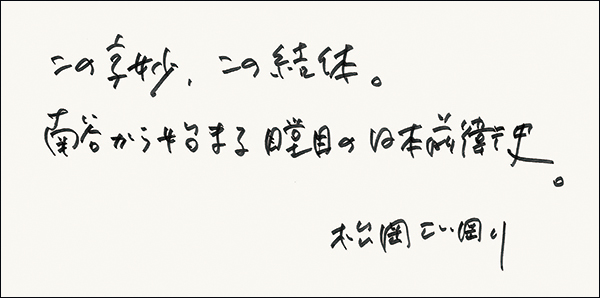 この妙、この結体。
南谷から始まる瞠目の日本前衛史。
松岡正剛